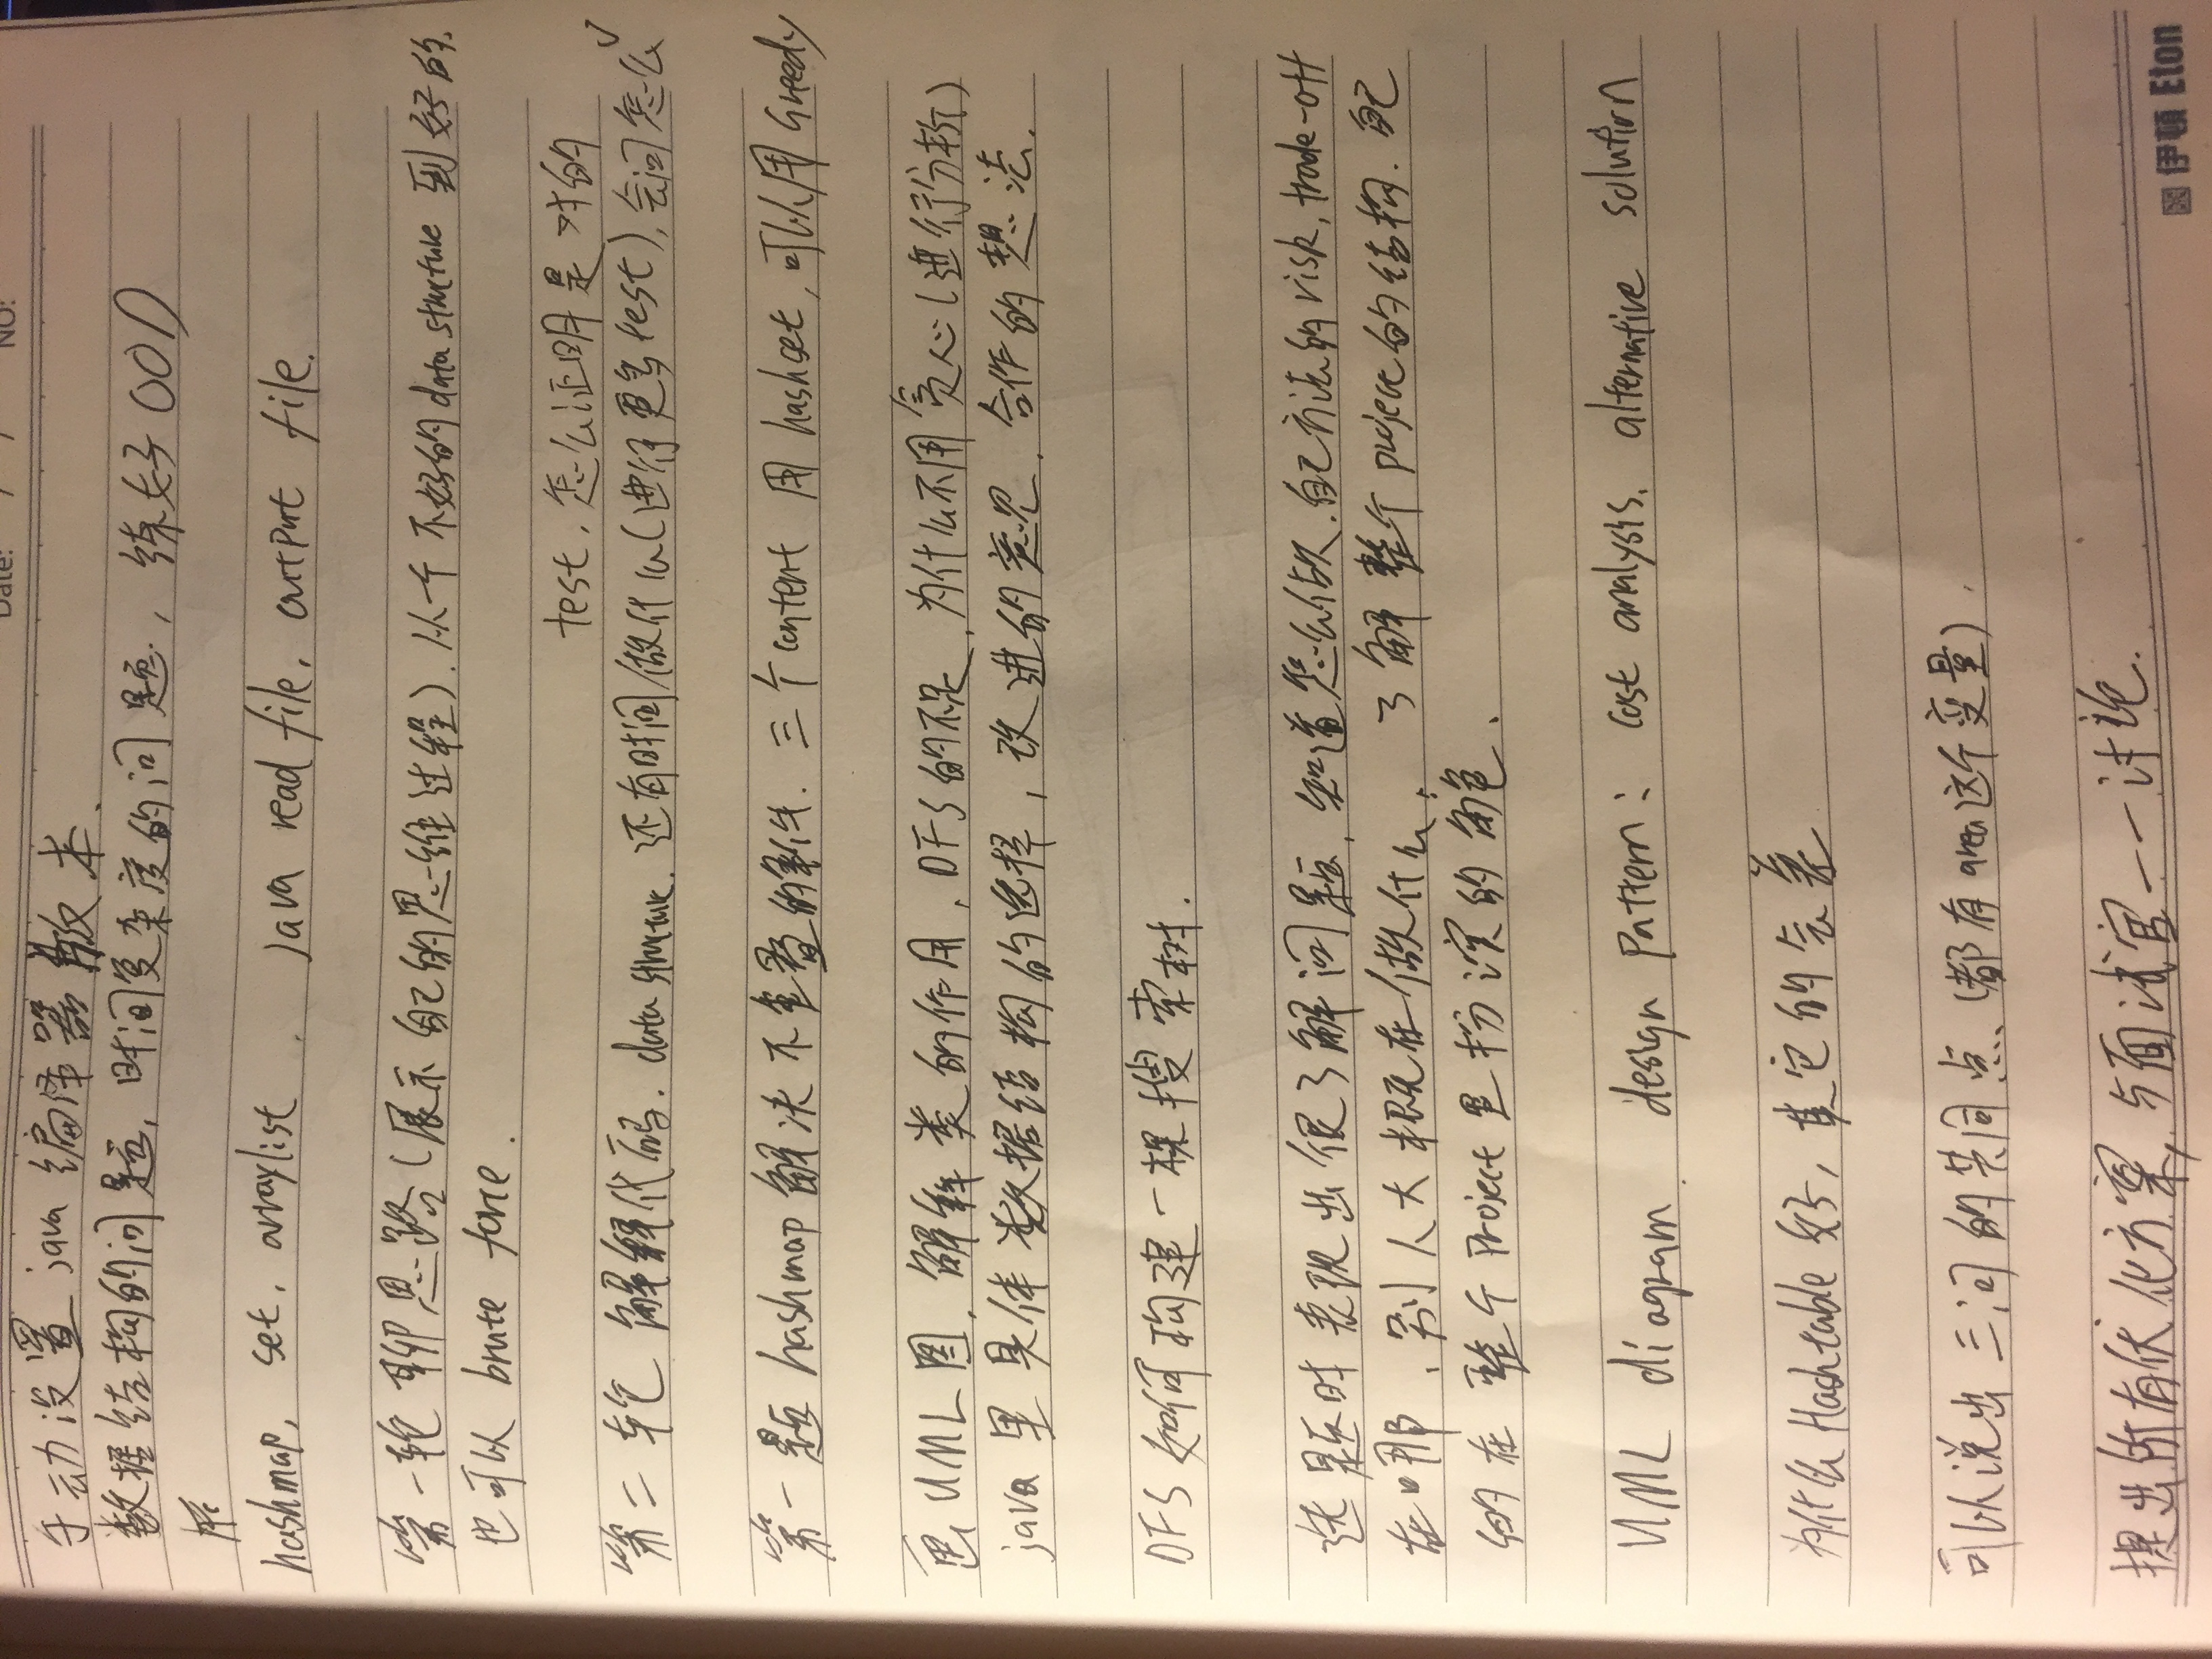 Date: / / NO:
手动设置 java 编译器版本.
数据结构的问题, 时间复杂度的问题, 练好 OOD
hashmap, set, arraylist. java read file, output file.
第一轮 聊思路(展示自己的思维过程). 从一个不好的 data structure 到好的.
也可以 brute force.
test, 怎么证明是对的
第二轮 解释代码. data structure. 还有时间做什么(进行更多test), 会问怎么
第一题 hashmap 解决不重叠的事件. 三个 content 用 hashset, 可以用 Greedy
画 UML 图, 解释类的作用, DFS 的不足, 为什么不用贪心(进行分析)
java 里具体数据结构的选择, 改进的意见. 合作的想法.
DFS 如何构建一棵搜索树.
选题时表现出很了解问题, 知道怎么做. 自己方法的 risk, trade-off
在哪, 别人大概在做什么, 了解整个 project 的结构. 自己
的在整个 Project 里扮演的角色.
UML diagram. design pattern: cost analysis. alternative solution
为什么 Hashtable 好, 其它的会差
可以说出三问的共同点 (都有 area 这个变量).
提出所有优化方案, 与面试官一一讨论.
伊頓 Eton